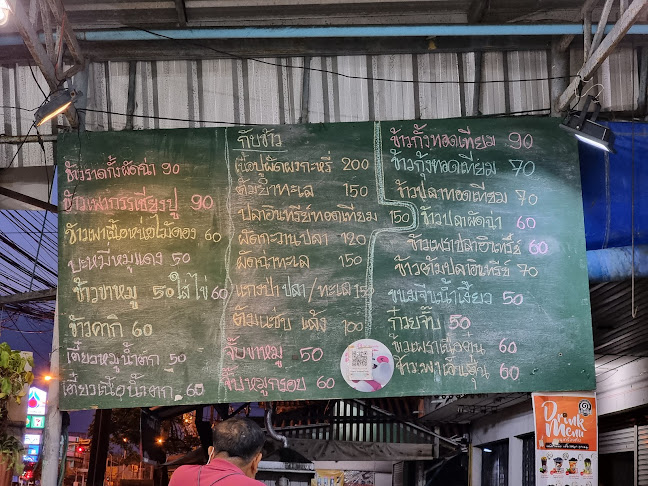 ข้าวราดกั้งผัดฉ่า 90
ข้าวเพากรรเชียงปู 90
ข้าวเพาเนื้อหน่อไม้ดอง 60
บะหมี่หมูแดง 50
ข้าวขาหมู 50 ใส่ไข่ 60
ข้าวคากิ 60
เตี๋ยวหมูน้ำตก 50
เตี๋ยวเนื้อน้ำตก 60
กับข้าว
เนื้อปูผัดผงกะหรี่ 200
ต้มยำทะเล 150
ปลาอินทรีย์ทอดเทียม 150
ผัดกะวานปลา 120
ผัดฉ่าทะเล 150
แกงป่า ปลา/ทะเล 150
ต้มแซ่บ แห้ง 100
จับขาหมู 50
จับหมูกรอบ 60
ข้าวกั้งทอดเทียม 90
ข้าวกุ้งทอดเทียม 70
ข้าวปลาทอดเทียม 70
ข้าวปลาผัดฉ่า 60
ข้าวเพราปลาอินทรีย์ 60
ข้าวต้มปลาอินทรีย์ 70
ขนมจีนน้ำเงี้ยว 50
ก๋วยจั๊บ 50
60
60
Drink
Menu